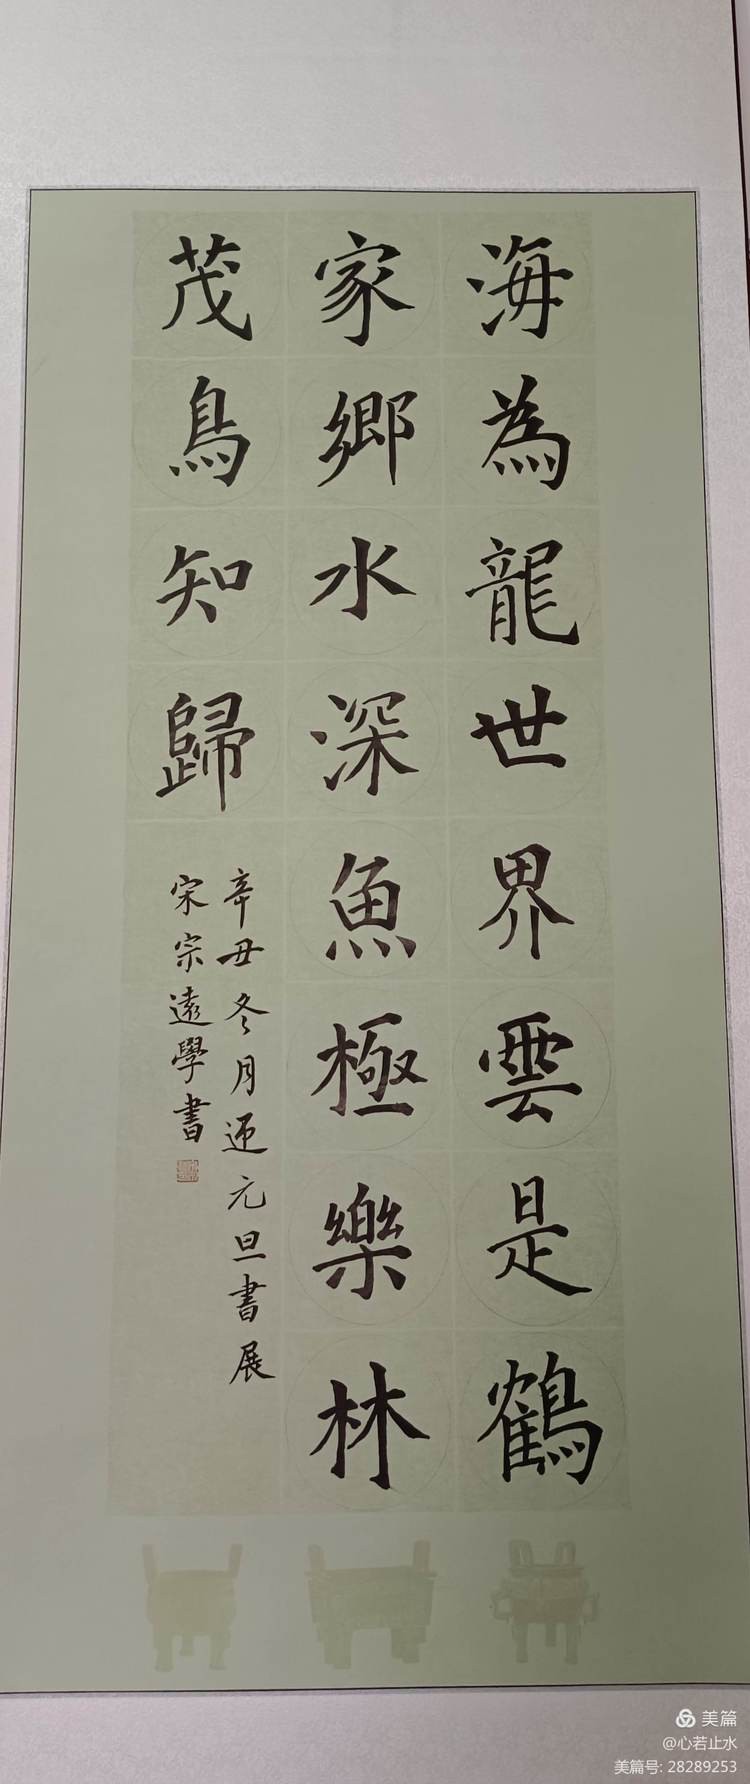 海為龍世界雲是鶴
家鄉水深魚極樂林
茂鳥知歸
辛丑冬月迎元旦書展
宋宗遠學書
美篇
@心若止水
美篇号: 28289253